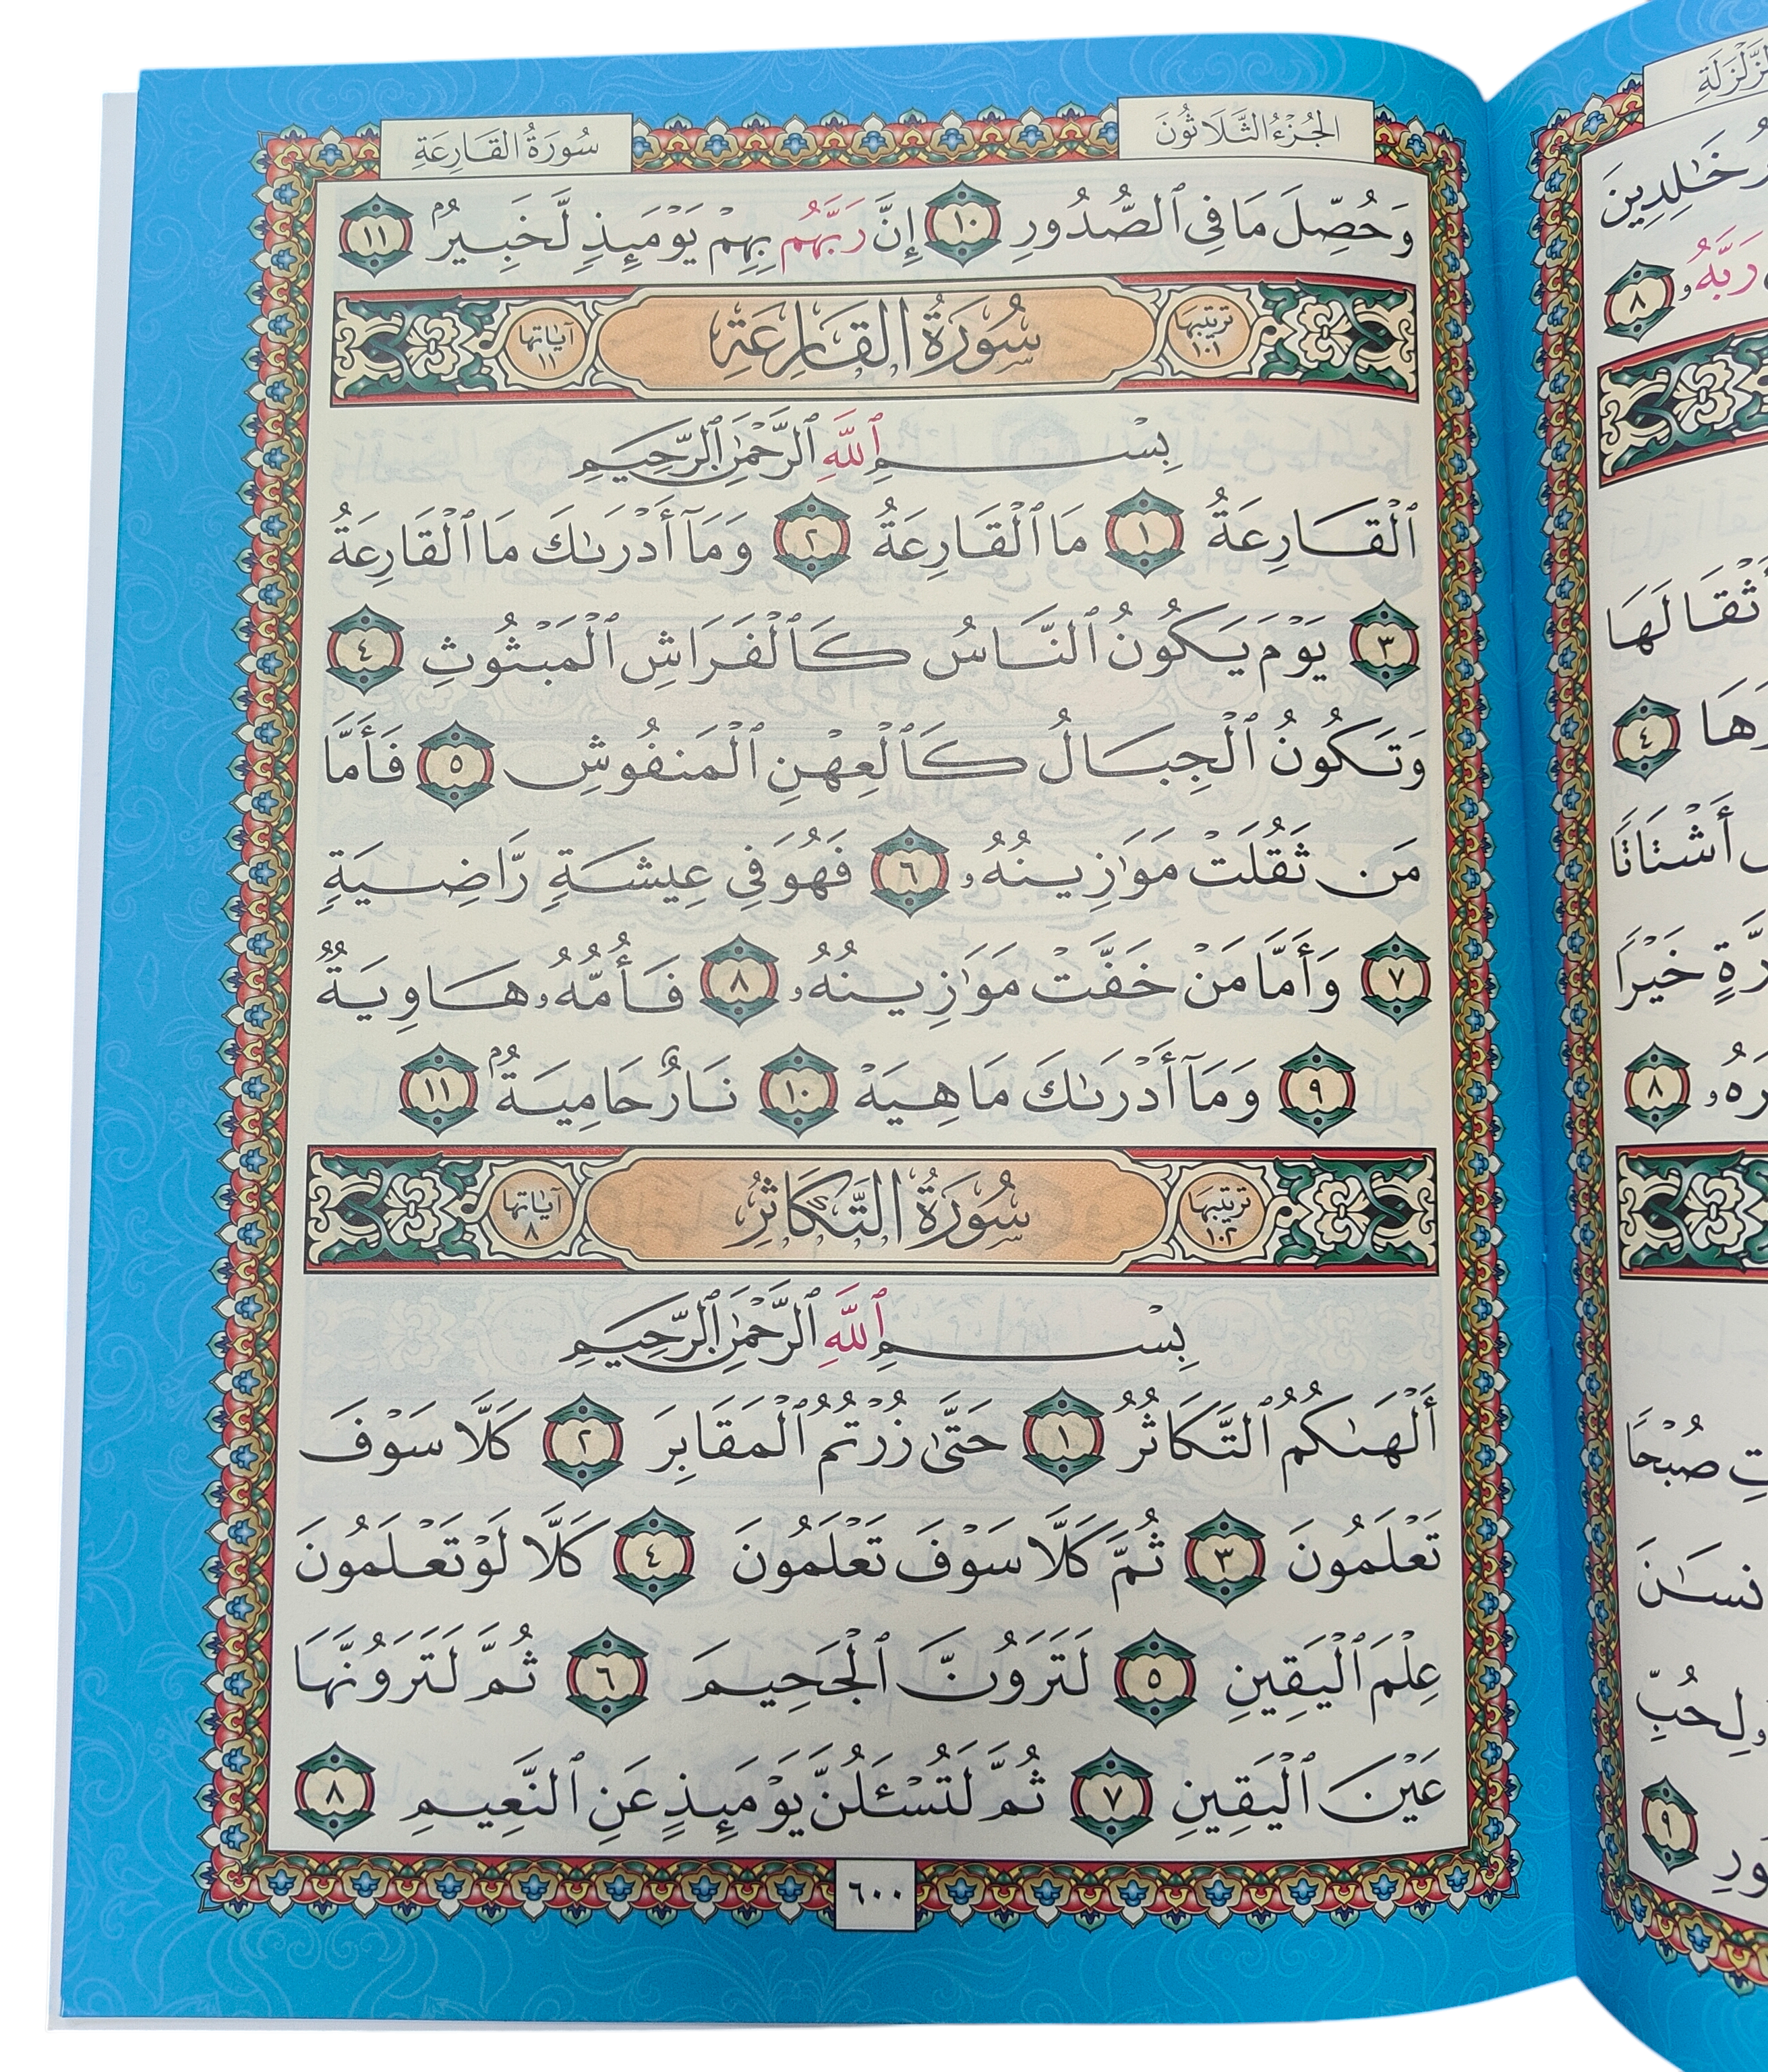 سُورَةُ القَارِعَةِ
الجُزْءُ الثَّلَاثُونَ
وَحُصِّلَ مَا فِى ٱلصُّدُورِ ١٠ إِنَّ رَبَّهُم بِهِمْ يَوْمَئِذٍ لَّخَبِيرٌۢ ١١
تَرتيبها ١٠١ سُورَةُ القَارِعَةِ آيَاتها ١١
بِسْمِ ٱللَّهِ ٱلرَّحْمَٰنِ ٱلرَّحِيمِ
ٱلْقَارِعَةُ ١ مَا ٱلْقَارِعَةُ ٢ وَمَآ أَدْرَىٰكَ مَا ٱلْقَارِعَةُ
٣ يَوْمَ يَكُونُ ٱلنَّاسُ كَٱلْفَرَاشِ ٱلْمَبْثُوثِ ٤
وَتَكُونُ ٱلْجِبَالُ كَٱلْعِهْنِ ٱلْمَنفُوشِ ٥ فَأَمَّا
مَن ثَقُلَتْ مَوَٰزِينُهُۥ ٦ فَهُوَ فِى عِيشَةٍ رَّاضِيَةٍ
٧ وَأَمَّا مَنْ خَفَّتْ مَوَٰزِينُهُۥ ٨ فَأُمُّهُۥ هَاوِيَةٌ
٩ وَمَآ أَدْرَىٰكَ مَا هِيَهْ ١٠ نَارٌ حَامِيَةٌۢ ١١
تَرتيبها ١٠٢ سُورَةُ التَّكَاثُرِ آيَاتها ٨
بِسْمِ ٱللَّهِ ٱلرَّحْمَٰنِ ٱلرَّحِيمِ
أَلْهَىٰكُمُ ٱلتَّكَاثُرُ ١ حَتَّىٰ زُرْتُمُ ٱلْمَقَابِرَ ٢ كَلَّا سَوْفَ
تَعْلَمُونَ ٣ ثُمَّ كَلَّا سَوْفَ تَعْلَمُونَ ٤ كَلَّا لَوْ تَعْلَمُونَ
عِلْمَ ٱلْيَقِينِ ٥ لَتَرَوُنَّ ٱلْجَحِيمَ ٦ ثُمَّ لَتَرَوُنَّهَا
عَيْنَ ٱلْيَقِينِ ٧ ثُمَّ لَتُسْـَٔلُنَّ يَوْمَئِذٍ عَنِ ٱلنَّعِيمِ ٨
٦٠٠
خَٰلِدِينَ
رَبَّهُۥ ٨
٤
أَشْتَاتًا
خَيْرًا
٨
صُبْحًا
لِحُبِّ
٩